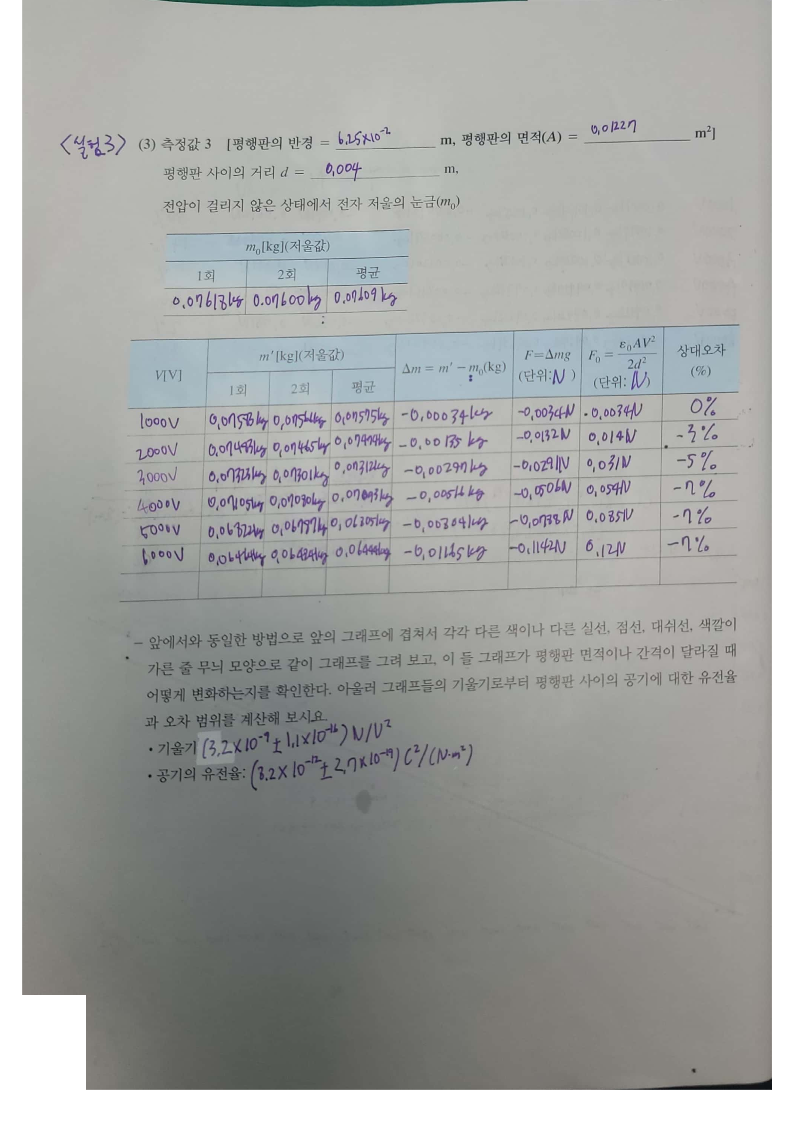 <실험3> (3) 측정값 3 [평행판의 반경 = 6.25×10⁻² m, 평행판의 면적(A) = 0.01227 m²]
평행판 사이의 거리 d = 0.004 m,
전압이 걸리지 않은 상태에서 전자 저울의 눈금(m₀)
m₀[kg](저울값)
1회 2회 평균
0.07618kg 0.07600kg 0.07609kg
V[V] m′[kg](저울값) 1회 2회 평균 Δm = m′ − m₀(kg) F=Δmg (단위:N) F₀ = ε₀AV²/2d² (단위:N) 상대오차 (%)
1000V 0.07575kg -0.00034kg -0.0034N 0.0034N 0%
2000V 0.07483kg 0.07465kg 0.07474kg -0.00135kg -0.0132N 0.014N -3%
3000V 0.07323kg 0.07301kg 0.07312kg -0.00297kg -0.0291N 0.031N -5%
4000V 0.07105kg 0.07080kg 0.07093kg -0.00516kg -0.0506N 0.054N -7%
5000V -0.0738N 0.085N -7%
6000V 0.06444kg -0.01165kg -0.1142N 0.12N -7%
- 앞에서와 동일한 방법으로 앞의 그래프에 겹쳐서 각각 다른 색이나 다른 실선, 점선, 대쉬선, 색깔이
가른 줄 무늬 모양으로 같이 그래프를 그려 보고, 이 들 그래프가 평행판 면적이나 간격이 달라질 때
어떻게 변화하는지를 확인한다. 아울러 그래프들의 기울기로부터 평행판 사이의 공기에 대한 유전율
과 오차 범위를 계산해 보시요
• 기울기 (3.2×10⁻⁹ ± 1.1×10⁻¹⁶) N/V²
• 공기의 유전율: (8.2×10⁻¹² ± 2.7×10⁻¹⁹) C²/(N·m²)